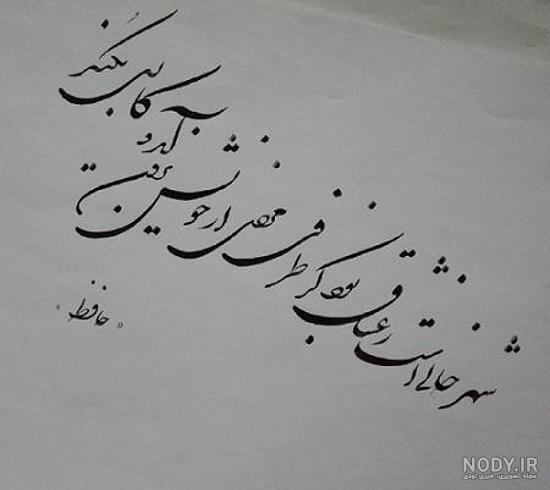 شهر خالی است ز عشاق بود کز طرفی مردی از خویش برون آید و کاری بکند
«حافظ»
NODY.IR
مجله تصویری، خبری نودی